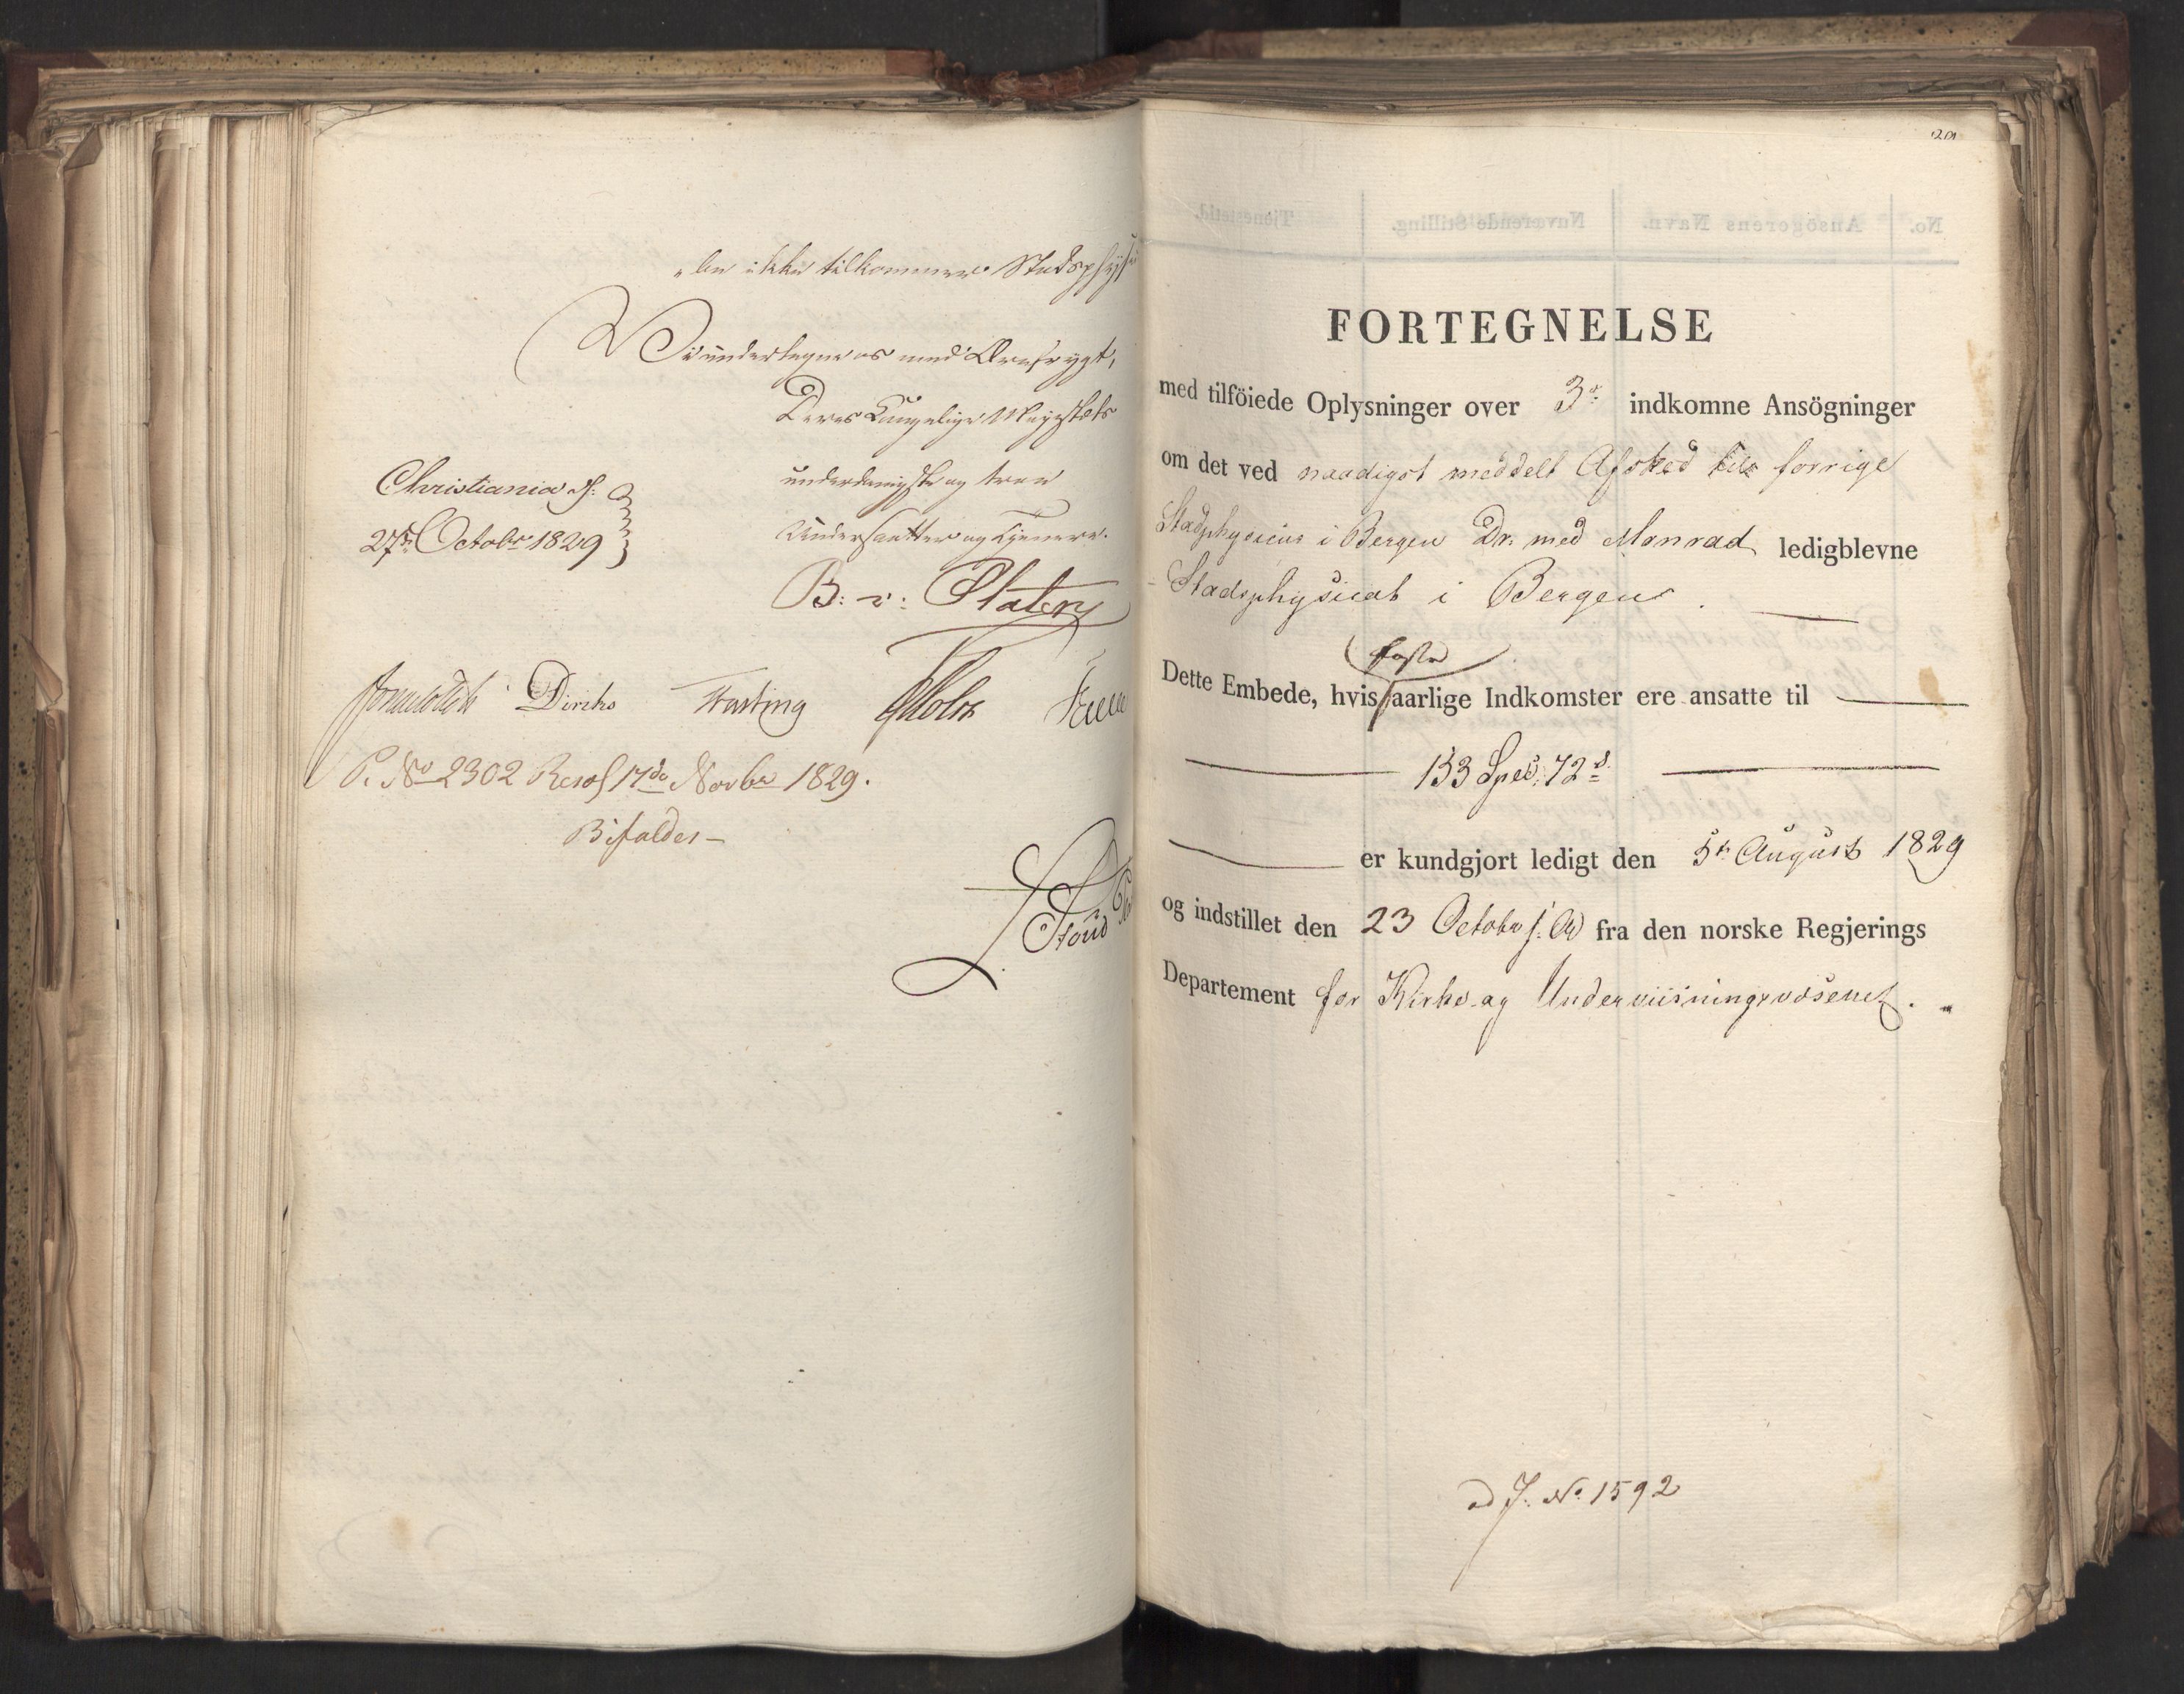 ikke tilkommer Stads
Vi undertegne os med Ærefrygt,
Deres Kongelige Majestæts
underdanigste og troe
Undersaatter og Tjenere.
Christiania d:
27de Octobr 1829
B: v: Platen
Diriks Fasting Holst
P. No 2302 Resol 17de Novbr 1829.
Bifaldes—
FORTEGNELSE
med tilföiede Oplysninger over 3de indkomne Ansögninger
om det ved naadigst meddelt Afsked forrige
Stadphysicus i Bergen Dr. med Monrad ledigblevne
Stadsphysicat i Bergen.
faste
Dette Embede, hvis aarlige Indkomster ere ansatte til
133 Spd. 72 s
er kundgjort ledigt den 5te August 1829
og indstillet den 23 October s. A. fra den norske Regjerings
Departement for Kirke- og Underviisningsvæsenet.
ad J. No 1592
No. Ansögerens Navn. Nuværende Stilling. Tjenestetid.